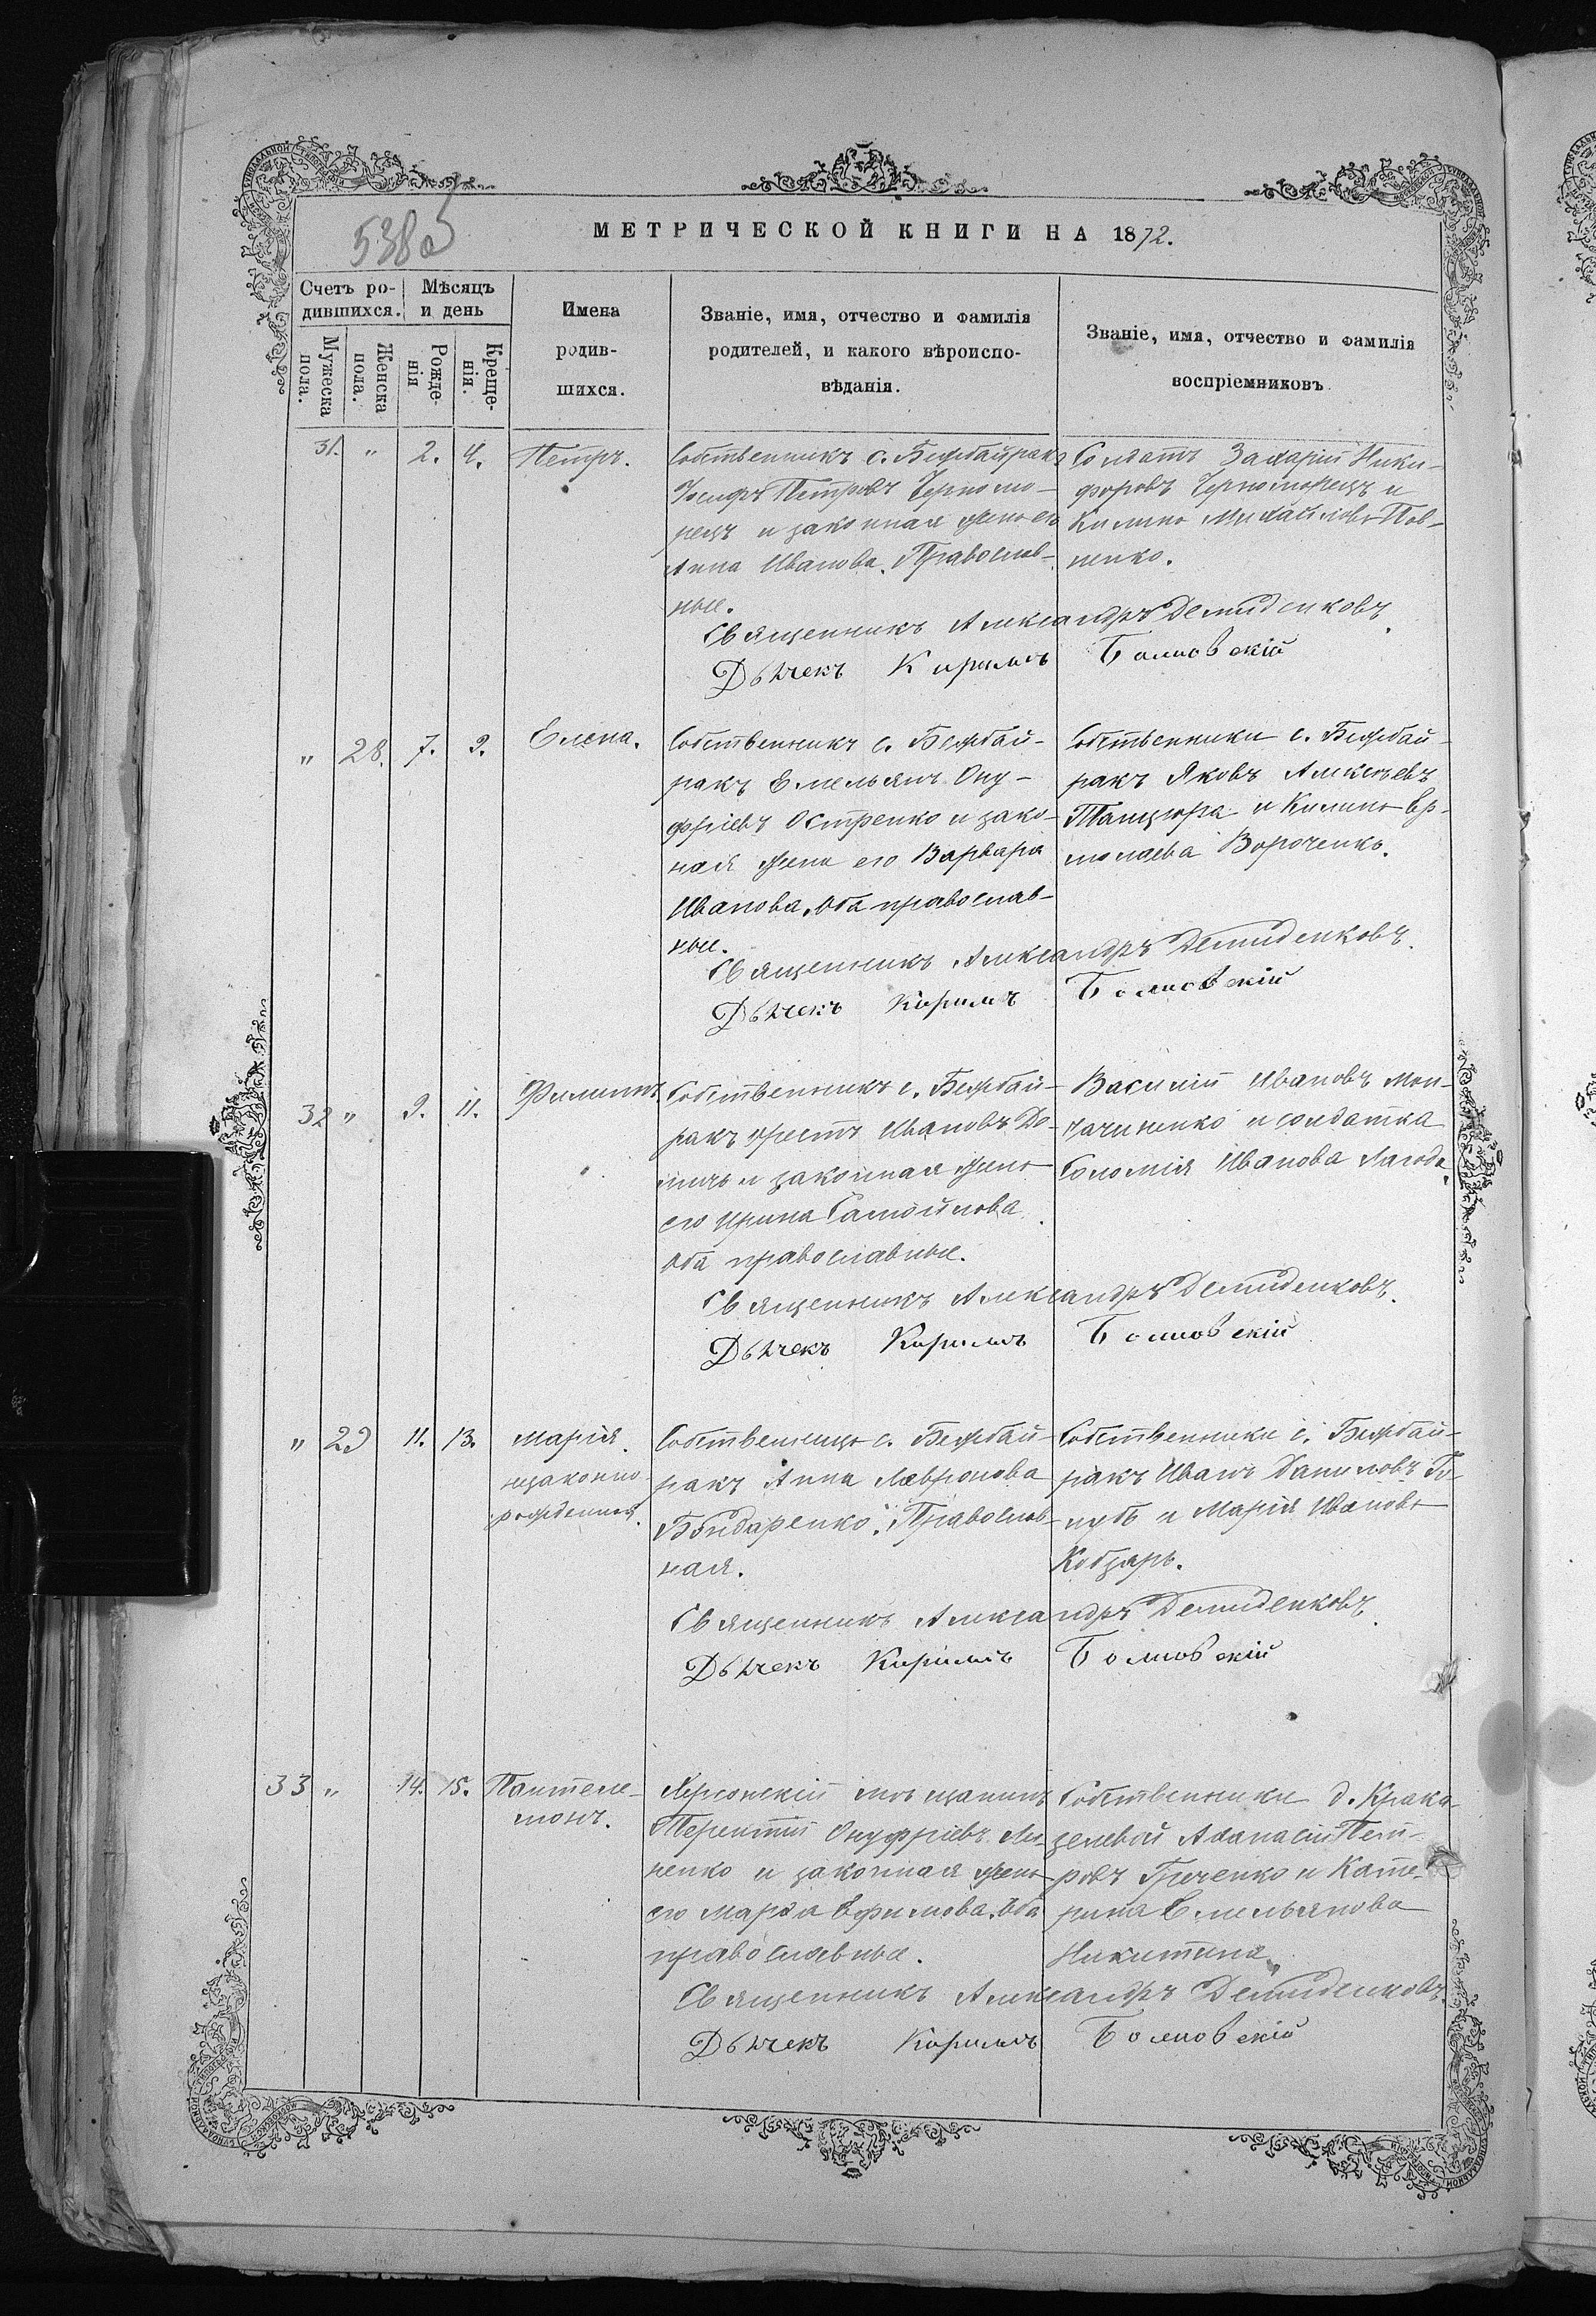 538 об
МЕТРИЧЕСКОЙ КНИГИ НА 1872.
Счетъ ро-
дившихся.
Мѣсяцъ
и день
Мужеска
пола.
Женска
пола.
Рожде-
нія
Креще-
нія.
Имена
родив-
шихся.
Званіе, имя, отчество и фамилія
родителей, и какого вѣроиспо-
вѣданія.
Званіе, имя, отчество и фамилія
воспріемниковъ
31. " 2. 4. Петръ.
Собственникъ с. Бежбайракъ
Іосифъ Петровъ Черномо-
рецъ и законная жена его
Анна Иванова. Православ-
ные.
Солдатъ Захарій Ники-
форовъ Черноморецъ и
Килина Михайлова Пов-
ненко.
Священникъ Александръ Демиденковъ
Дьячекъ Кирилъ
" 28. 7. 9. Елена.
Собственникъ с. Бежбай-
ракъ Емельянъ Ону-
фріевъ Остренко и зако-
ная жена его Варвара
Иванова. Оба православ-
ные.
Собственники с. Бежбай-
ракъ Яковъ Алексѣевъ
Танцюра и Килина Ер-
молаева Вороченко.
Священникъ Александръ Демиденковъ.
Дьячекъ Кирилъ
32 " 9. 11. Филиппъ.
Собственникъ с. Бежбай-
ракъ Ивановъ До-
и законная жена
его Ирина Самойлова
Оба православные.
Василій Ивановъ Мон-
чачиненко и солдатка
Соломія Иванова Лагода.
Священникъ Александръ Демиденковъ.
Дьячекъ Кирилъ
" 29 11. 13. Марія.
незаконно-
рожденная.
Собственница с. Бежбай-
ракъ Анна Лавронова
Бондаренко. Православ-
ная.
Собственники с. Бежбай-
ракъ Иванъ Даниловъ Го-
лубъ и Марія Иванова
Кобзарь.
Священникъ Александръ Демиденковъ
Дьячекъ Кирилъ
33 " 14. 15. Пантеле-
монъ.
Херсонскій мѣщанинъ
Терентій Онуфріевъ Ли-
ненко и законная жена
его Марѳа Ефимова. Оба
православные.
Собственники д. Крака-
целевой Аѳанасій Пет-
ровъ Греченко и Кате-
рина Емельянова
Никитина.
Священникъ Александръ Демиденковъ.
Дьячекъ Кирилъ